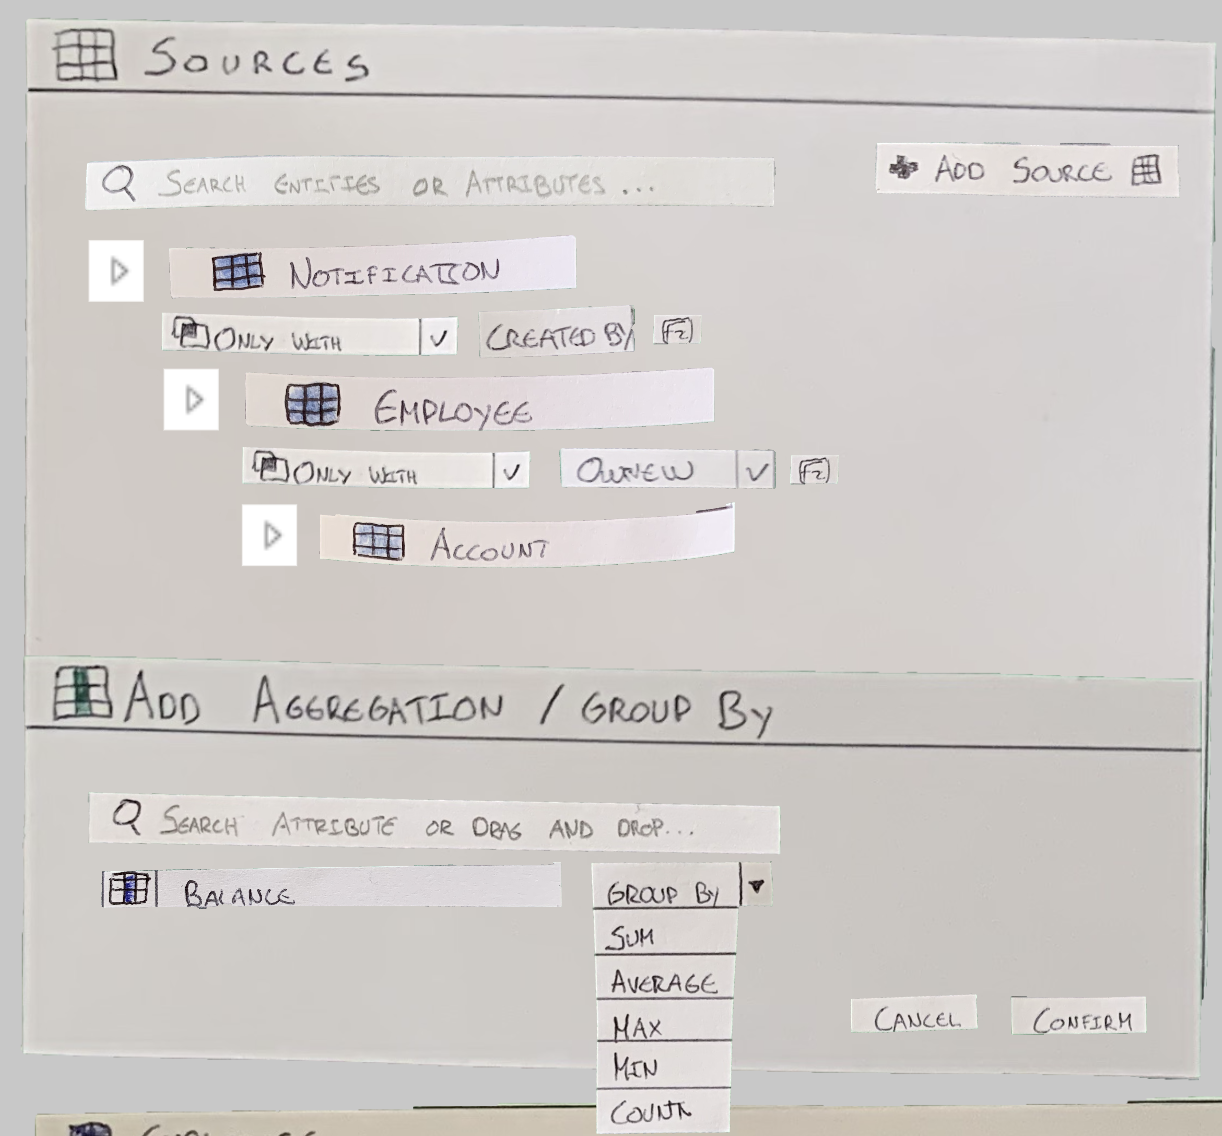 SOURCES
SEARCH ENTITIES OR ATTRIBUTES ...
ADD SOURCE
NOTIFICATION
ONLY WITH
CREATED BY
EMPLOYEE
ONLY WITH
ACCOUNT
ADD AGGREGATION / GROUP BY
SEARCH ATTRIBUTE OR DRAG AND DROP...
BALANCE
GROUP BY
SUM
AVERAGE
MAX
MIN
COUNT
CANCEL
CONFIRM